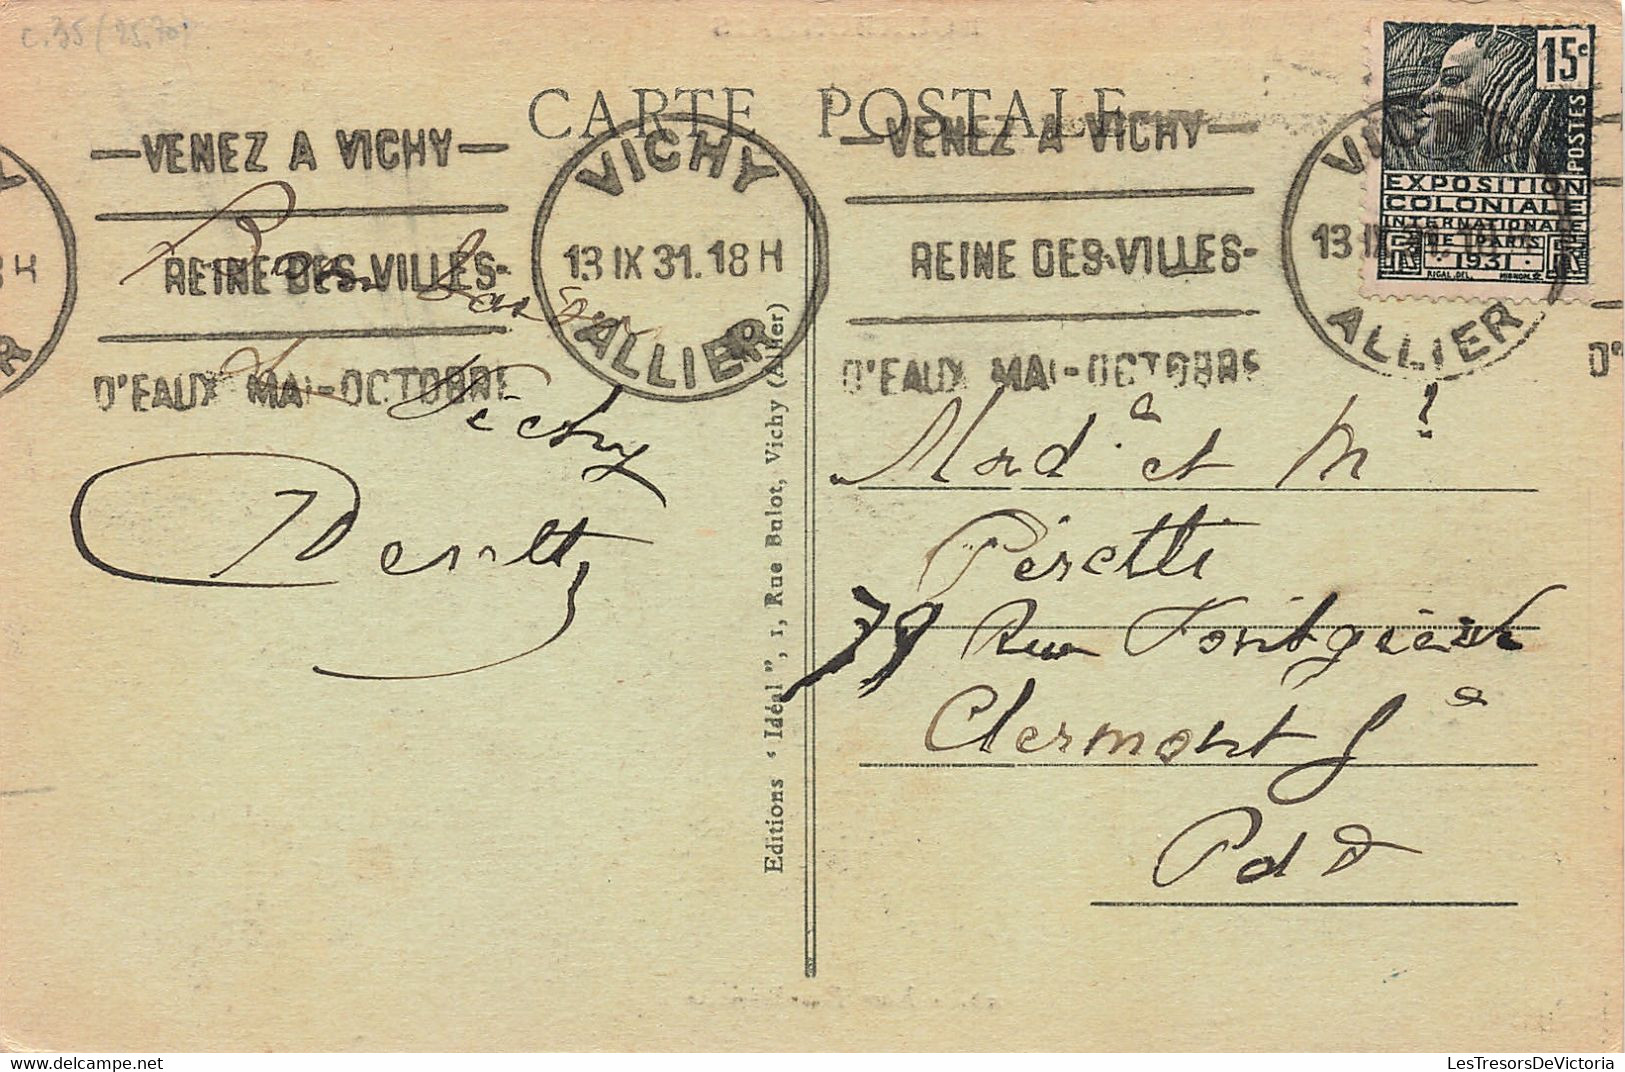 c.35 (25.70)
CARTE POSTALE
—VENEZ A VICHY—
REINE DES VILLES-
D'EAUX MAI-OCTOBRE
VICHY
13 IX 31. 18 H
ALLIER
—VENEZ A VICHY—
REINE DES VILLES-
D'EAUX MAI-OCTOBRE
VICHY
13 IX
ALLIER
15c
POSTES
EXPOSITION
COLONIALE
INTERNATIONALE
DE PARIS
1931
RIGAL.DEL.
MIGNON.SC
Y
3 H
R
D'
Bon
de Vichy
Editions "Idéal", 1, Rue Bulot, Vichy (Allier)
Mad a et Mr
Péretti
79 Rue Fontgiève
Clermont Fd
P d D
LesTresorsDeVictoria
LesTresorsDeVictoria.com